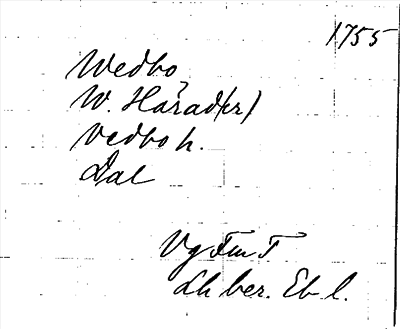 1755
Wedbo,
W. Härad(er)
Vedbo h.
Dal
Vg Fm T
Lh ber. Eb l.